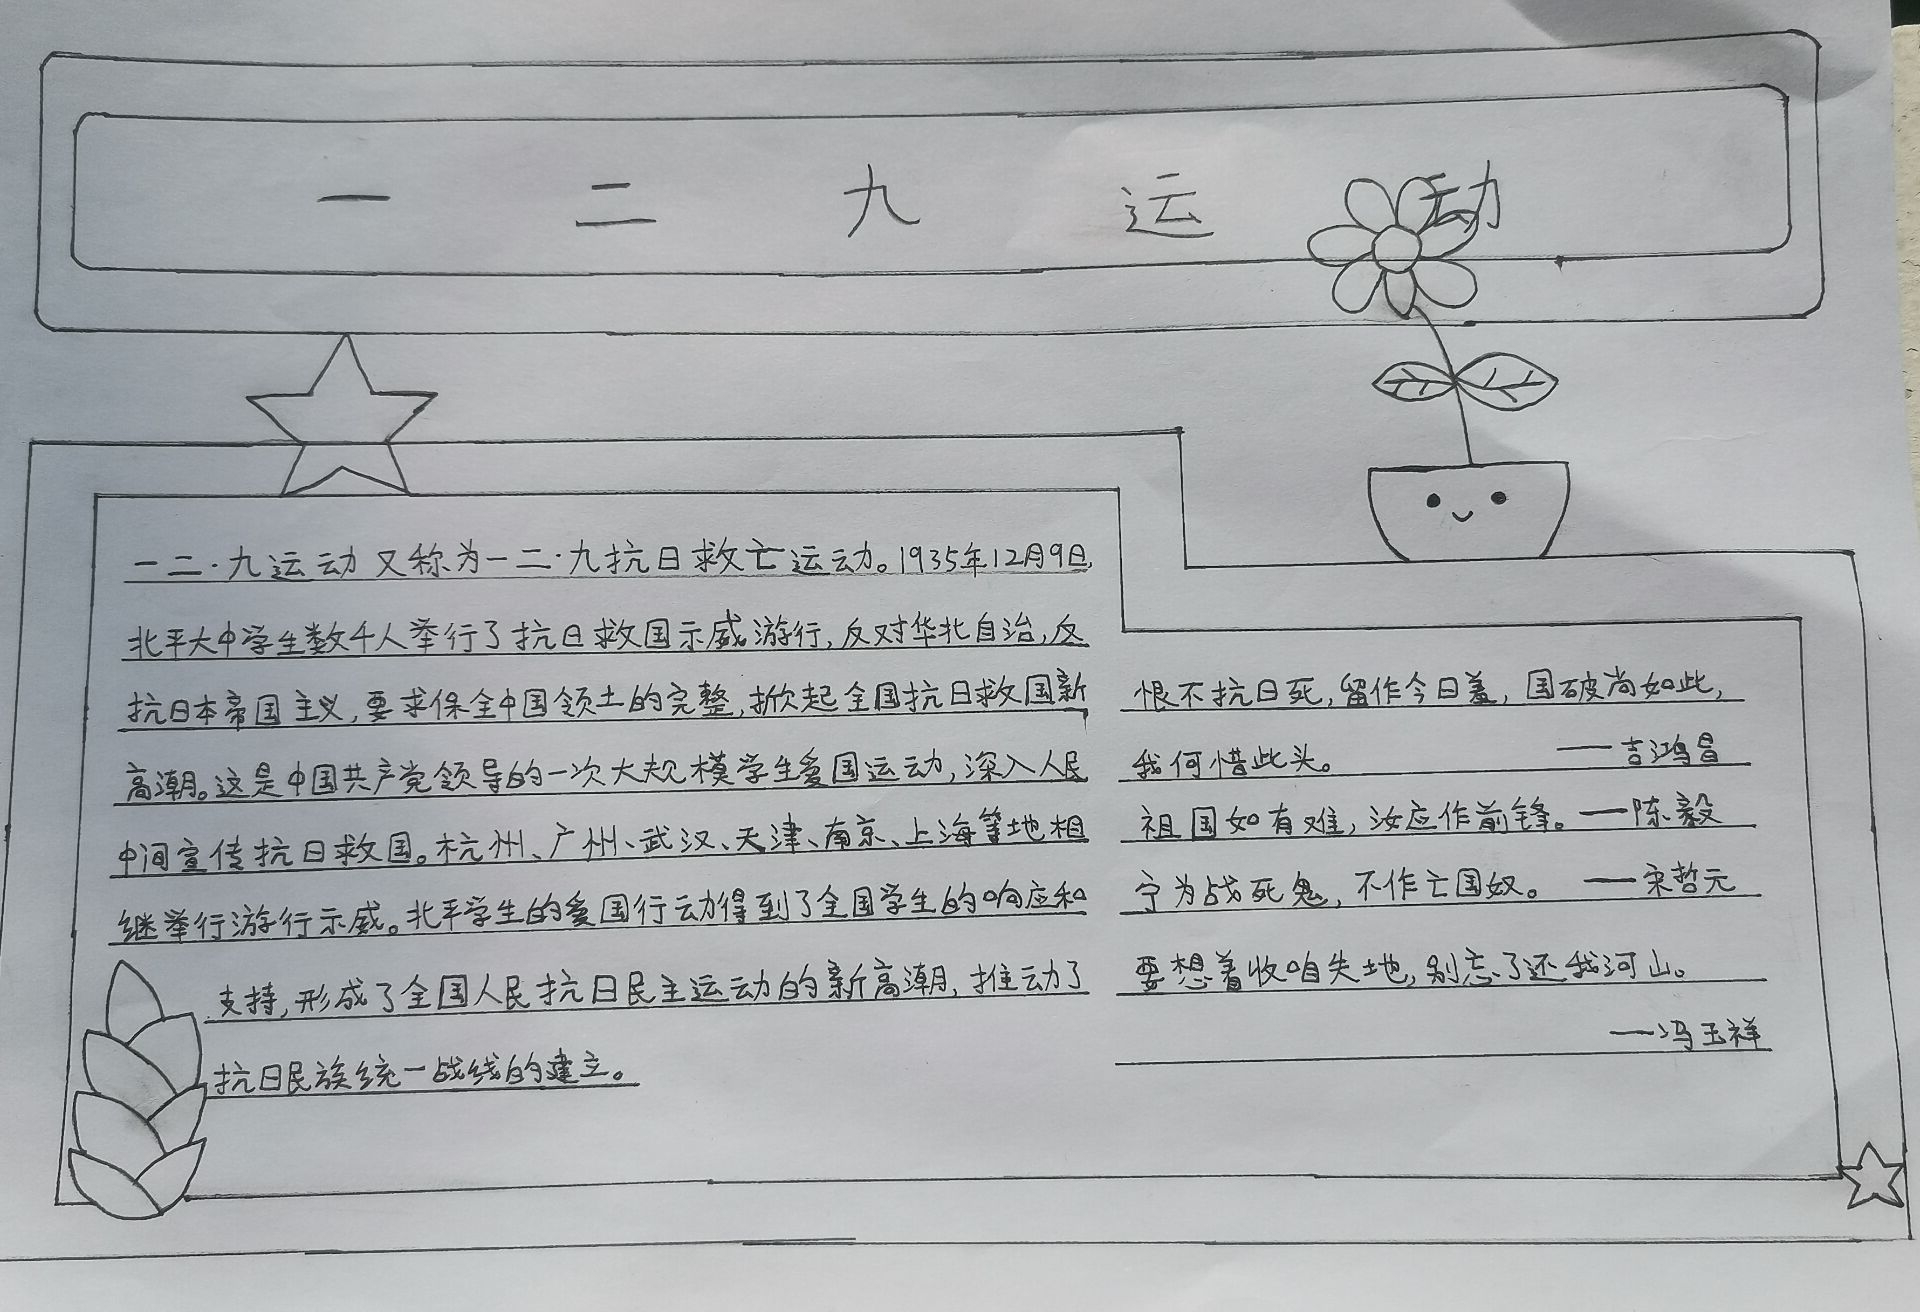 一二九运动
一二·九运动又称为一二·九抗日救亡运动。1935年12月9日,
北平大中学生数千人举行了抗日救国示威游行,反对华北自治,反
抗日本帝国主义,要求保全中国领土的完整,掀起全国抗日救国新
高潮。这是中国共产党领导的一次大规模学生爱国运动,深入人民
中间宣传抗日救国。杭州、广州、武汉、天津、南京、上海等地相
继举行游行示威。北平学生的爱国行动得到了全国学生的响应和
支持,形成了全国人民抗日民主运动的新高潮,推动了
抗日民族统一战线的建立。
恨不抗日死,留作今日羞,国破尚如此,
我何惜此头。 ——吉鸿昌
祖国如有难,汝应作前锋。——陈毅
宁为战死鬼,不作亡国奴。——宋哲元
要想着收咱失地,别忘了还我河山。
——冯玉祥